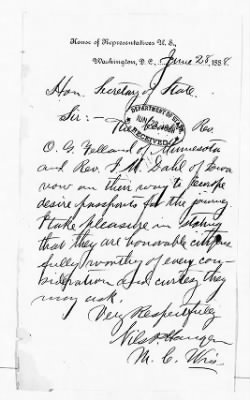 House of Representatives U. S.,
Washington, D. C., June 28, 1888.
Hon. Secretary of State.
Sir:— The Rev.
DEPARTMENT OF STATE
RECEIVED
O. G. Felland of Minnesota
and Rev. I. M. Dahl of Iowa
now on their way to Europe
desire passports for the journey
I take pleasure in stating
that they are honorable citizens
fully worthy of every con-
sideration and curtesy they
may ask.
Very Respectfully
Nils P. Haugen
M. C. Wis.